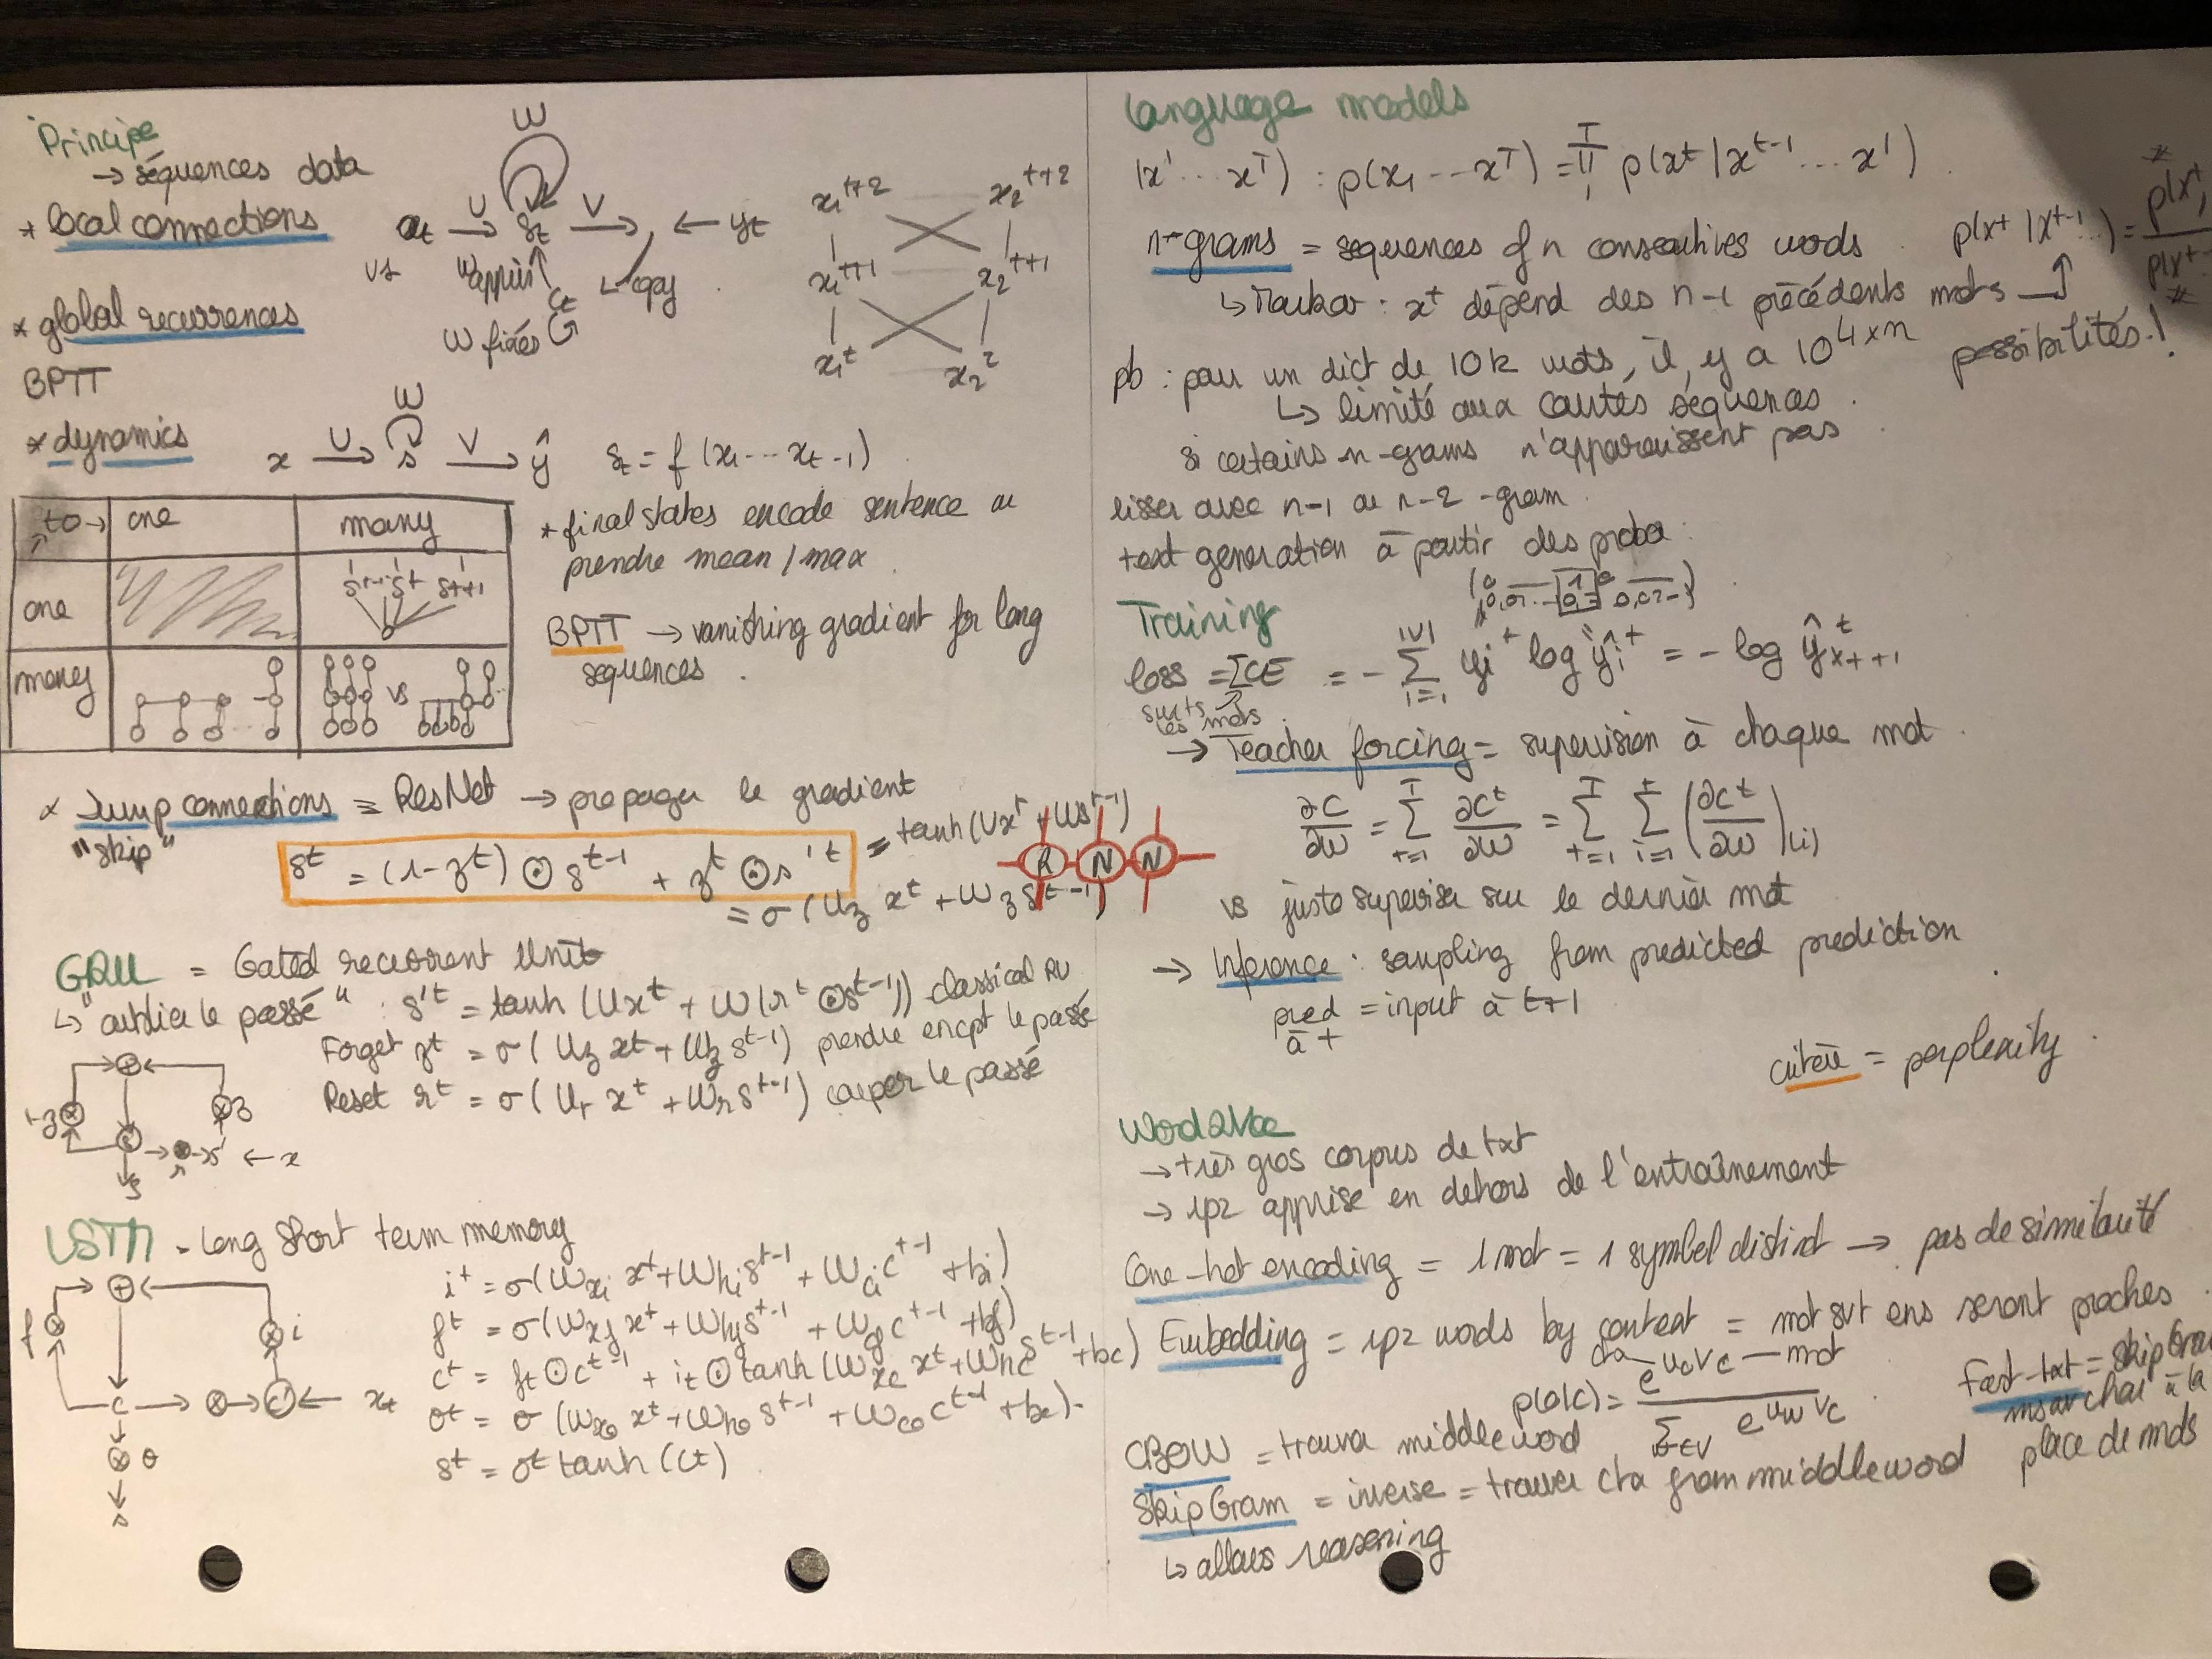 Principe
→ séquences data
* local connections
vs
* global recurrences
BPTT
W
U
V
s_t
← y_t
W appris
c_t
↳ copy
W fixés
x₁^{t+2} x₂^{t+2}
x₁^{t+1} x₂^{t+1}
x₁^t x₂^2
* dynamics
W
x U→ s V→ ŷ
s_t = f(x₁ ... x_{t-1})
to → one many
one s^{t-1} s^t s^{t+1}
many vs
* final states encode sentence ou
prendre mean / max
BPTT → vanishing gradient for long
sequences.
* Jump connections = ResNet → propager le gradient
"skip"
s^t = (1-z^t) ⊙ s^{t-1} + z^t ⊙ s'^t
= tanh(Ux^t + Ws^{t-1})
= σ(U_z x^t + W_z s^{t-1})
R N N
GRU = Gated recurrent Unit
↳ "oublier le passé" : s'^t = tanh(Ux^t + W(r^t ⊙ s^{t-1})) classical RU
Forget z^t = σ(U_z x^t + U_z s^{t-1}) prendre en cpt le passé
Reset r^t = σ(U_r x^t + W_r s^{t-1}) couper le passé
+
1-z z
s
r s' ← x
s
LSTM - Long Short term memory
i^t = σ(W_{xi} x^t + W_{hi} s^{t-1} + W_{ci} c^{t-1} + bi)
f^t = σ(W_{xf} x^t + W_{hf} s^{t-1} + W_{cf} c^{t-1} + bf)
c^t = f_t ⊙ c^{t-1} + i_t ⊙ tanh(W_{xc} x^t + W_{hc} s^{t-1} + bc)
o^t = σ(W_{xo} x^t + W_{ho} s^{t-1} + W_{co} c^{t-1} + bc).
s^t = o^t tanh(c_t)
+
f i
c → ⊗ → c' ← x_t
⊗ o
s
Language models
(x¹ ... x^T) : p(x₁ --- x^T) = ∏₁^T p(x^t | x^{t-1} ... x¹)
n-grams = sequences of n consecutives words
p(x^t | x^{t-1} ...) =
↳ Markov : x^t dépend des n-1 précédents mots
pb : pour un dict de 10k mots, il y a 10^{4×n} possibilités !
↳ limité aux courtes séquences.
si certains n-grams n'apparaissent pas
lisser avec n-1 ou n-2 -gram
text generation à partir des proba
Training
loss = ΣCE = - Σ_{i=1}^{|V|} y_i^t log ŷ_i^t = - log ŷ^t_{x_{t+1}}
sur ts les mots
→ Teacher forcing = supervision à chaque mot
∂C/∂W = Σ_{t=1}^T ∂C^t/∂W = Σ_{t=1}^T Σ_{i=1}^t (∂C^t/∂W)_{(i)}
vs juste superviser sur le dernier mot
→ Inference : sampling from predicted prediction
pred à t = input à t+1
critère = perplexity
Word2Vec
→ très gros corpus de txt
→ rpz apprise en dehors de l'entraînement
One-hot encoding = 1 mot = 1 symbel distinct → pas de similarité
Embedding = rpz words by context = mot svt ens seront proches
ctx mot
p(o|c) = e^{u_c v_c} / Σ_{w∈V} e^{u_w v_c}
CBOW = trouver middleword
SkipGram = inverse = trouver ctx from middleword
↳ allows reasoning
Fast-txt = SkipGram
ms av char à la
place de mots